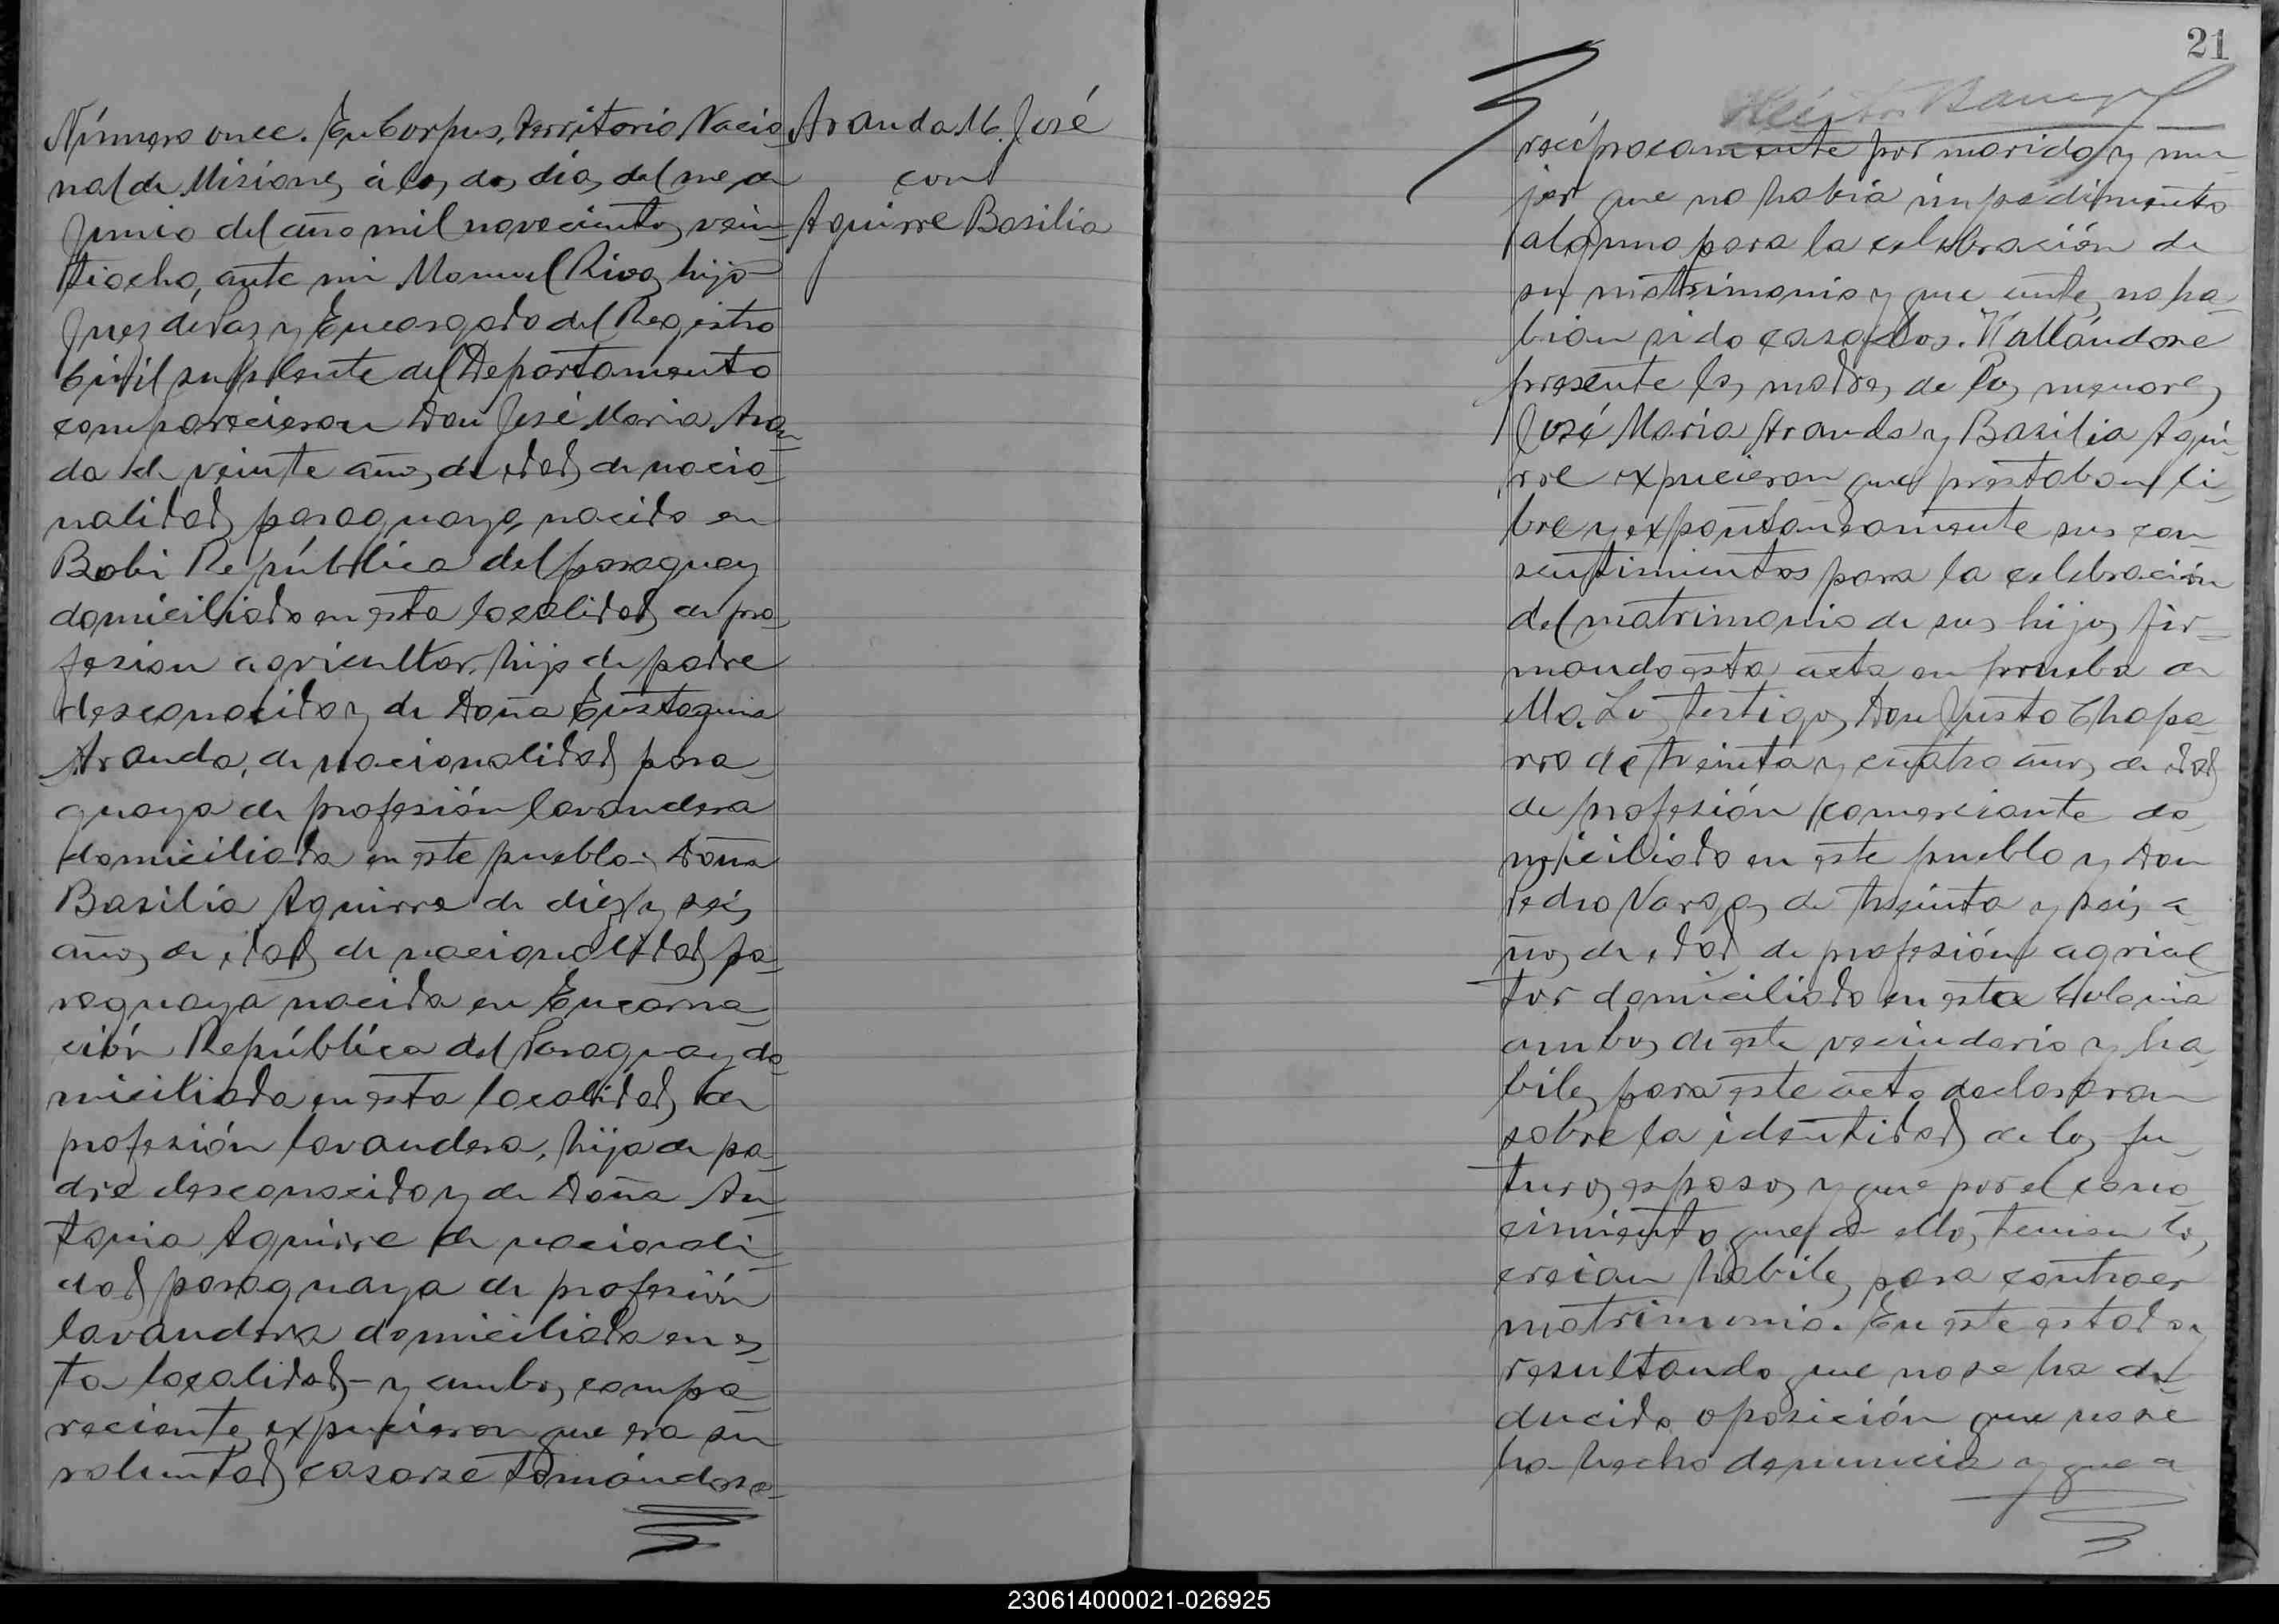 Número once. En Corpus, Territorio Nacio-
nal de Misiones á los dos dias del mes de
Junio del año mil novecientos vein-
tiocho, ante mi Manuel Rivas hijo
Juez de Paz y Encargado del Registro
Civil suplente del Departamento
comparecieron Don José Maria Aran-
da de veinte años de edad de nacio-
nalidad paraguaya, nacido en
Bobi República del paraguay
domiciliado en esta localidad de pro-
fesion agricultor, hijo de padre
desconocido y de Doña Eustaquia
Aranda, de nacionalidad para-
guaya de profesión lavandera
domiciliada en este pueblo y Doña
Basilia Aguirre de diez y seis
años de edad de nacionalidad pa-
raguaya nacida en Encarna-
ción República del Paraguay do-
miciliada en esta localidad de
profesión lavandera, hija de pa-
dre desconocido y de Doña An-
tonia Aguirre de nacionali-
dad paraguaya de profesión
lavandera domiciliada en es-
ta localidad - y ambos compa-
recientes expucieron que era su
voluntad casarse tomándose-
Aranda M. José
con
Aguirre Basilia
21
recíprocamente por marido y mu-
jer que no habia impedimento
alguno para la celebración de
su matrimonio y que antes no ha-
bian sido casados. Hallándose
presente las madres de los menores
José María Aranda y Basilia Agui-
rre expucieron que prestaban li-
bre y expontaneamente sus con-
sentimientos para la celebración
del matrimonio de sus hijos fir-
mando esta acta en prueba de
ello. Los testigos Don Justo Chapa-
rro de treinta y cuatro años de edad
de profesión comerciante do-
miciliado en este pueblo y Don
Pedro Vargas de treinta y seis a-
ños de edad de profesión agricul-
tor domiciliado en esta Colonia
ambos de este vecindario y ha-
biles para este acto declararon
sobre la identidad de los fu-
turos esposos y que por el cono-
cimiento que de ellos tenian los
creian habiles para contraer
matrimonio. En este estado y
resultando que no se ha de-
ducido oposición que no se
ha hecho denuncia y que a
230614000021-026925